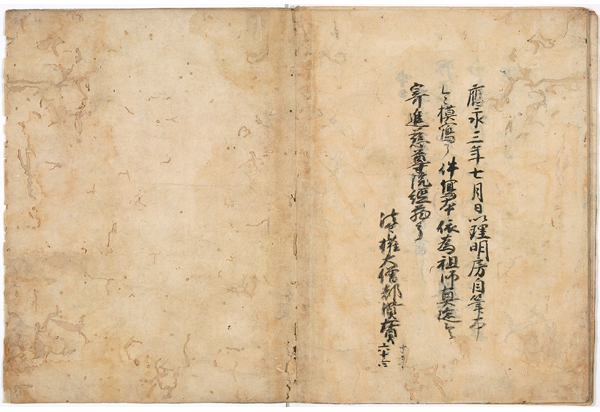 應永三年七月日以理明房自筆本
令模寫了件寫本依為祖師真迹
寄進慈尊院經藏了
法印權大僧都賢寶
六十四